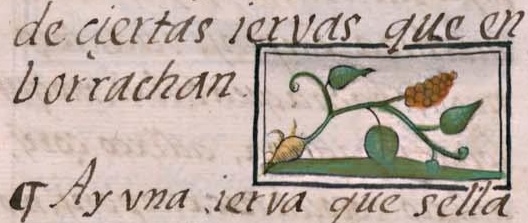 de ciertas iervas que en
borrachan
¶ Ay vna ierva que sella